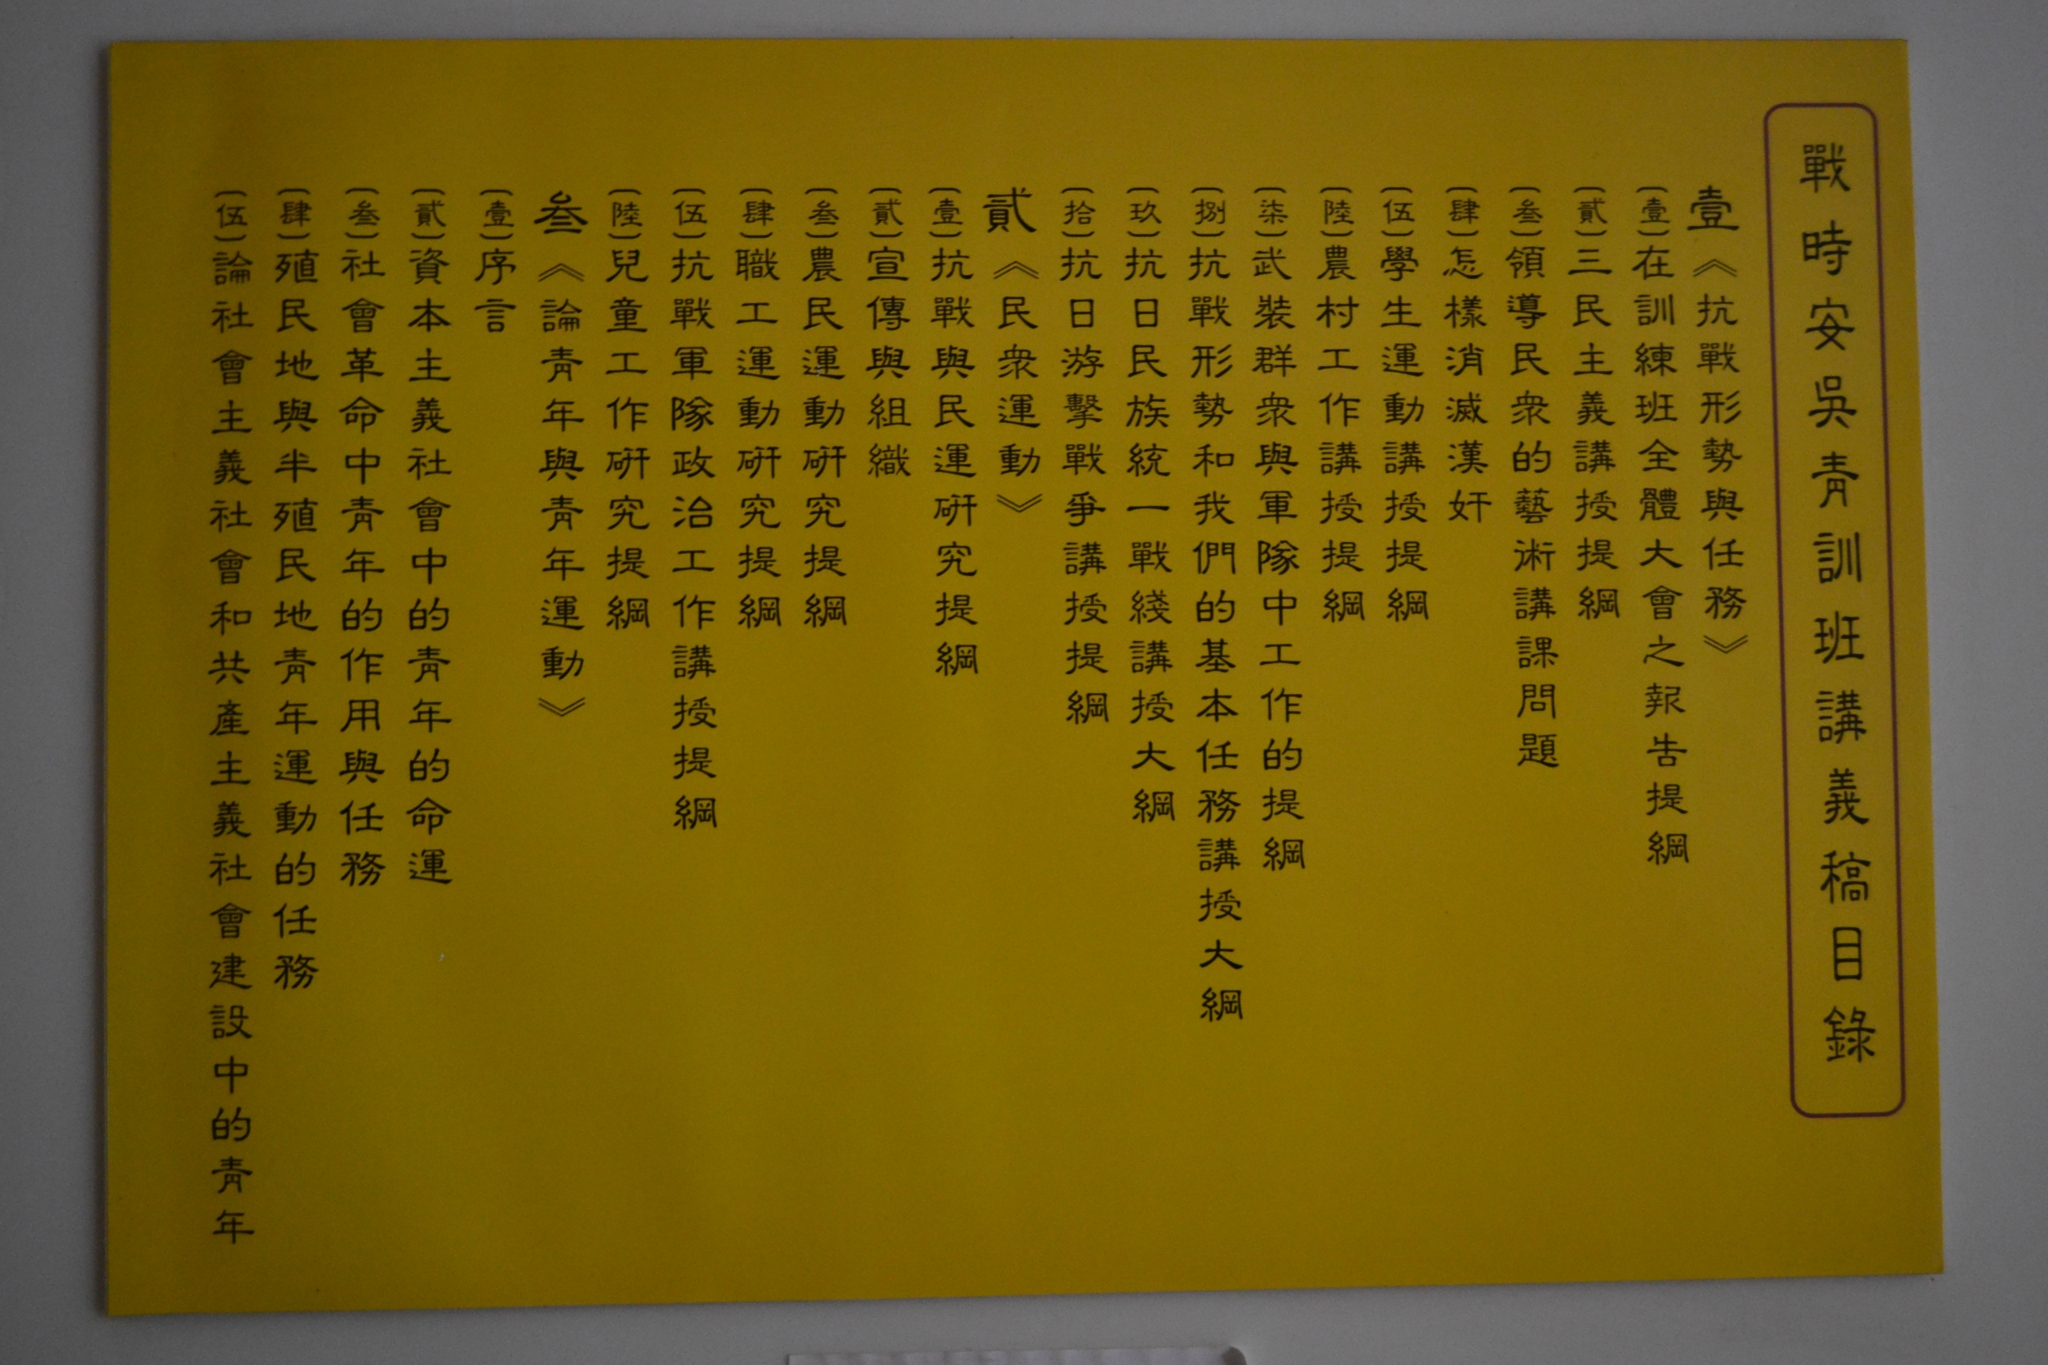 戰時安吳青訓班講義稿目錄
壹《抗戰形勢與任務》
(壹)在訓練班全體大會之報告提綱
(貳)三民主義講授提綱
(叁)領導民衆的藝術講課問題
(肆)怎樣消滅漢奸
(伍)學生運動講授提綱
(陸)農村工作講授提綱
(柒)武裝群衆與軍隊中工作的提綱
(捌)抗戰形勢和我們的基本任務講授大綱
(玖)抗日民族統一戰綫講授大綱
(拾)抗日游擊戰爭講授提綱
貳《民衆運動》
(壹)抗戰與民運研究提綱
(貳)宣傳與組織
(叁)農民運動研究提綱
(肆)職工運動研究提綱
(伍)抗戰軍隊政治工作講授提綱
(陸)兒童工作研究提綱
叁《論青年與青年運動》
(壹)序言
(貳)資本主義社會中的青年的命運
(叁)社會革命中青年的作用與任務
(肆)殖民地與半殖民地青年運動的任務
(伍)論社會主義社會和共產主義社會建設中的青年